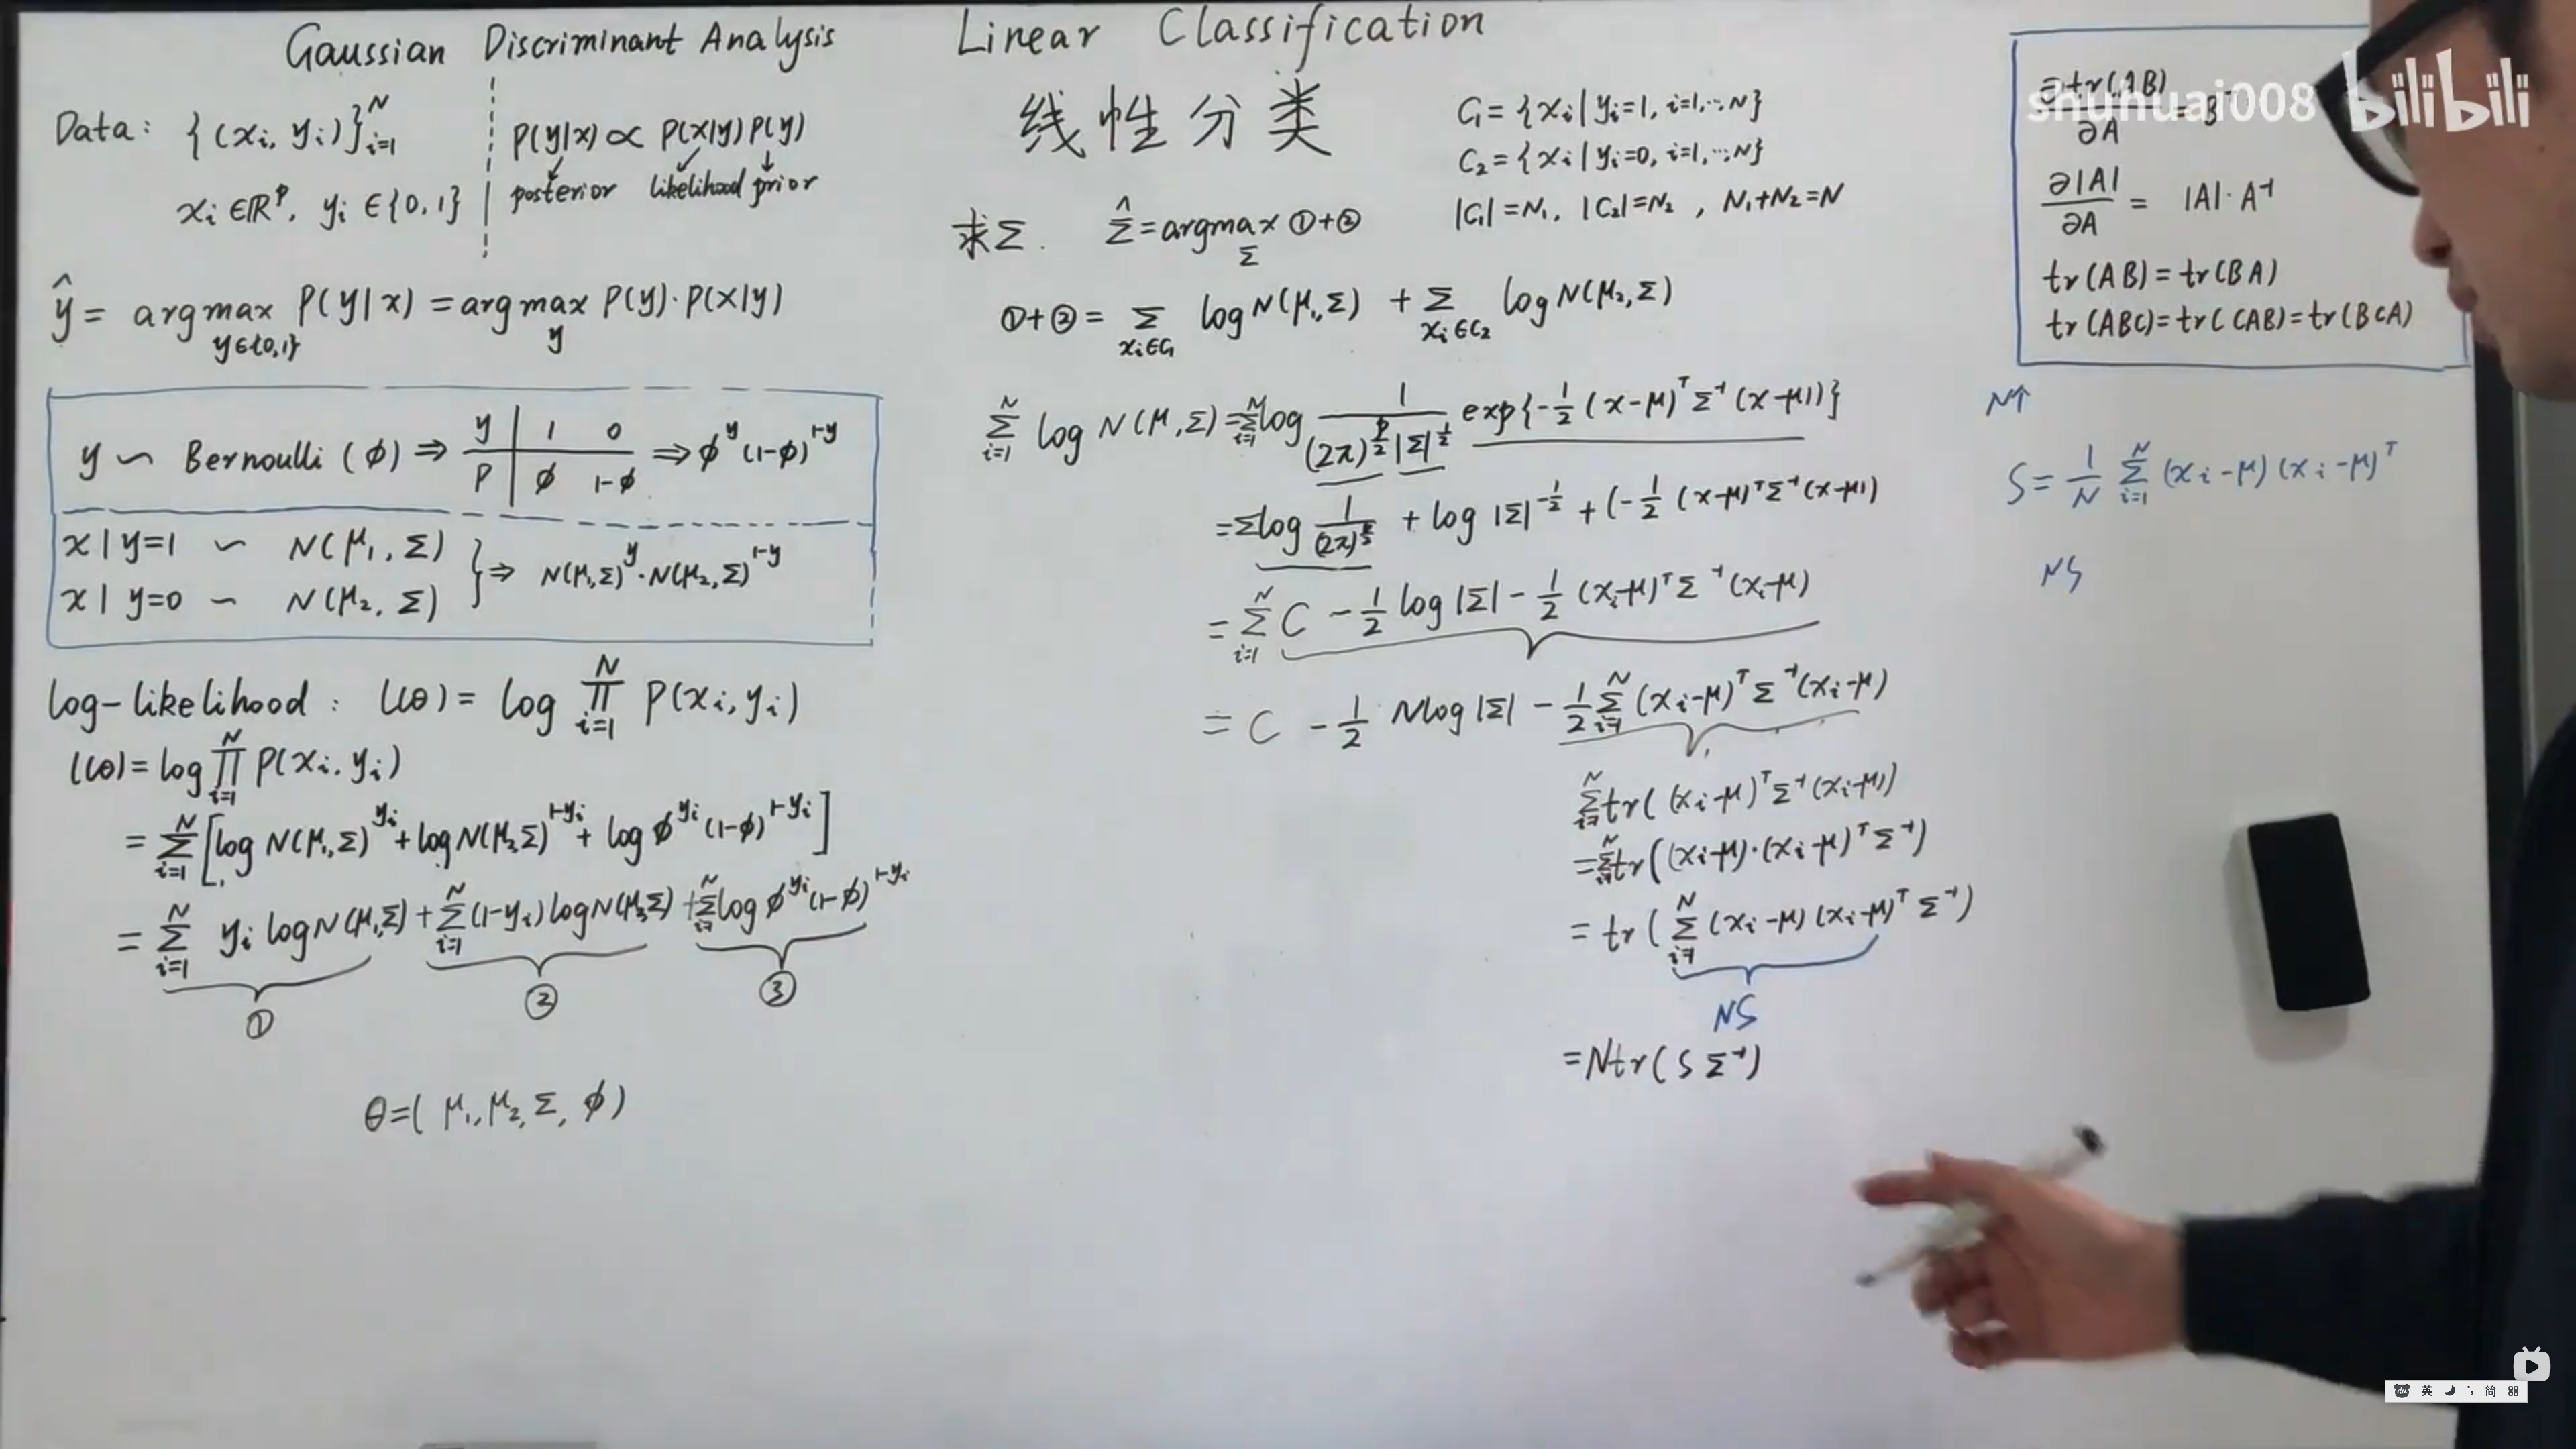 Gaussian Discriminant Analysis
Data: {(xᵢ, yᵢ)}ᵢ₌₁ᴺ
xᵢ ∈ ℝᵖ, yᵢ ∈ {0,1}
P(y|x) ∝ P(x|y) P(y)
posterior likelihood prior
ŷ = argmax_{y∈{0,1}} P(y|x) = argmax_y P(y)·P(x|y)
y ~ Bernoulli (φ) ⇒ y | 1 0 ⇒ φ^y (1-φ)^{1-y}
P | φ 1-φ
x|y=1 ~ N(μ₁, Σ)
x|y=0 ~ N(μ₂, Σ) } ⇒ N(μ₁,Σ)^y · N(μ₂,Σ)^{1-y}
log-likelihood: l(θ) = log ∏ᵢ₌₁ᴺ P(xᵢ, yᵢ)
l(θ) = log ∏ᵢ₌₁ᴺ P(xᵢ, yᵢ)
= Σᵢ₌₁ᴺ [log N(μ₁,Σ)^{yᵢ} + log N(μ₂,Σ)^{1-yᵢ} + log φ^{yᵢ} (1-φ)^{1-yᵢ}]
= Σᵢ₌₁ᴺ yᵢ log N(μ₁,Σ) + Σᵢ₌₁ᴺ (1-yᵢ) log N(μ₂,Σ) + Σᵢ₌₁ᴺ log φ^{yᵢ} (1-φ)^{1-yᵢ}
① ② ③
θ=( μ₁, μ₂, Σ, φ)
Linear Classification
线性分类
C₁ = {xᵢ | yᵢ=1, i=1,⋯,N}
C₂ = {xᵢ | yᵢ=0, i=1,⋯,N}
|C₁| = N₁, |C₂| = N₂, N₁+N₂=N
求Σ. Σ̂ = argmax_Σ ①+②
①+② = Σ_{xᵢ∈C₁} log N(μ₁,Σ) + Σ_{xᵢ∈C₂} log N(μ₂,Σ)
Σᵢ₌₁ᴺ log N(μ,Σ) = Σᵢ₌₁ᴺ log 1/((2π)^{p/2} |Σ|^{1/2}) exp{-1/2 (x-μ)ᵀ Σ⁻¹ (x-μ)}
= Σ log 1/(2π)^{p/2} + log |Σ|^{-1/2} + (-1/2 (x-μ)ᵀ Σ⁻¹ (x-μ))
= Σᵢ₌₁ᴺ C - 1/2 log |Σ| - 1/2 (xᵢ-μ)ᵀ Σ⁻¹ (xᵢ-μ)
= C - 1/2 N log |Σ| - 1/2 Σᵢ₌₁ᴺ (xᵢ-μ)ᵀ Σ⁻¹ (xᵢ-μ)
Σᵢ₌₁ᴺ tr( (xᵢ-μ)ᵀ Σ⁻¹ (xᵢ-μ))
= Σᵢ₌₁ᴺ tr((xᵢ-μ)·(xᵢ-μ)ᵀ Σ⁻¹)
= tr( Σᵢ₌₁ᴺ (xᵢ-μ)(xᵢ-μ)ᵀ Σ⁻¹)
NS
= N tr( S Σ⁻¹)
∂tr(AB)/∂A = B
∂|A|/∂A = |A|·A⁻¹
tr(AB) = tr(BA)
tr(ABC) = tr(CAB) = tr(BCA)
N↑
S = 1/N Σᵢ₌₁ᴺ (xᵢ-μ)(xᵢ-μ)ᵀ
NS
shuhuai008 bilibili
英 简